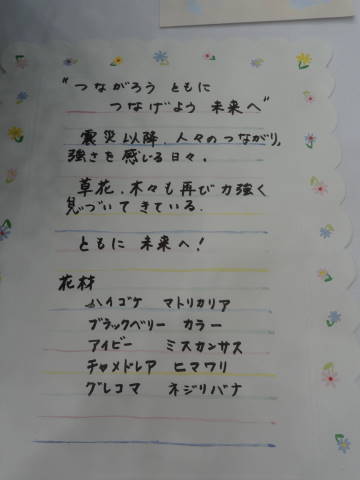 "つながろう ともに
つなげよう 未来へ"
震災以降、人々のつながり、
強さを感じる日々。
草花、木々も再び力強く
息づいてきている。
ともに 未来へ!
花材
ハイゴケ マトリカリア
ブラックベリー カラー
アイビー ミスカンサス
チャメドレア ヒマワリ
グレコマ ネジリバナ